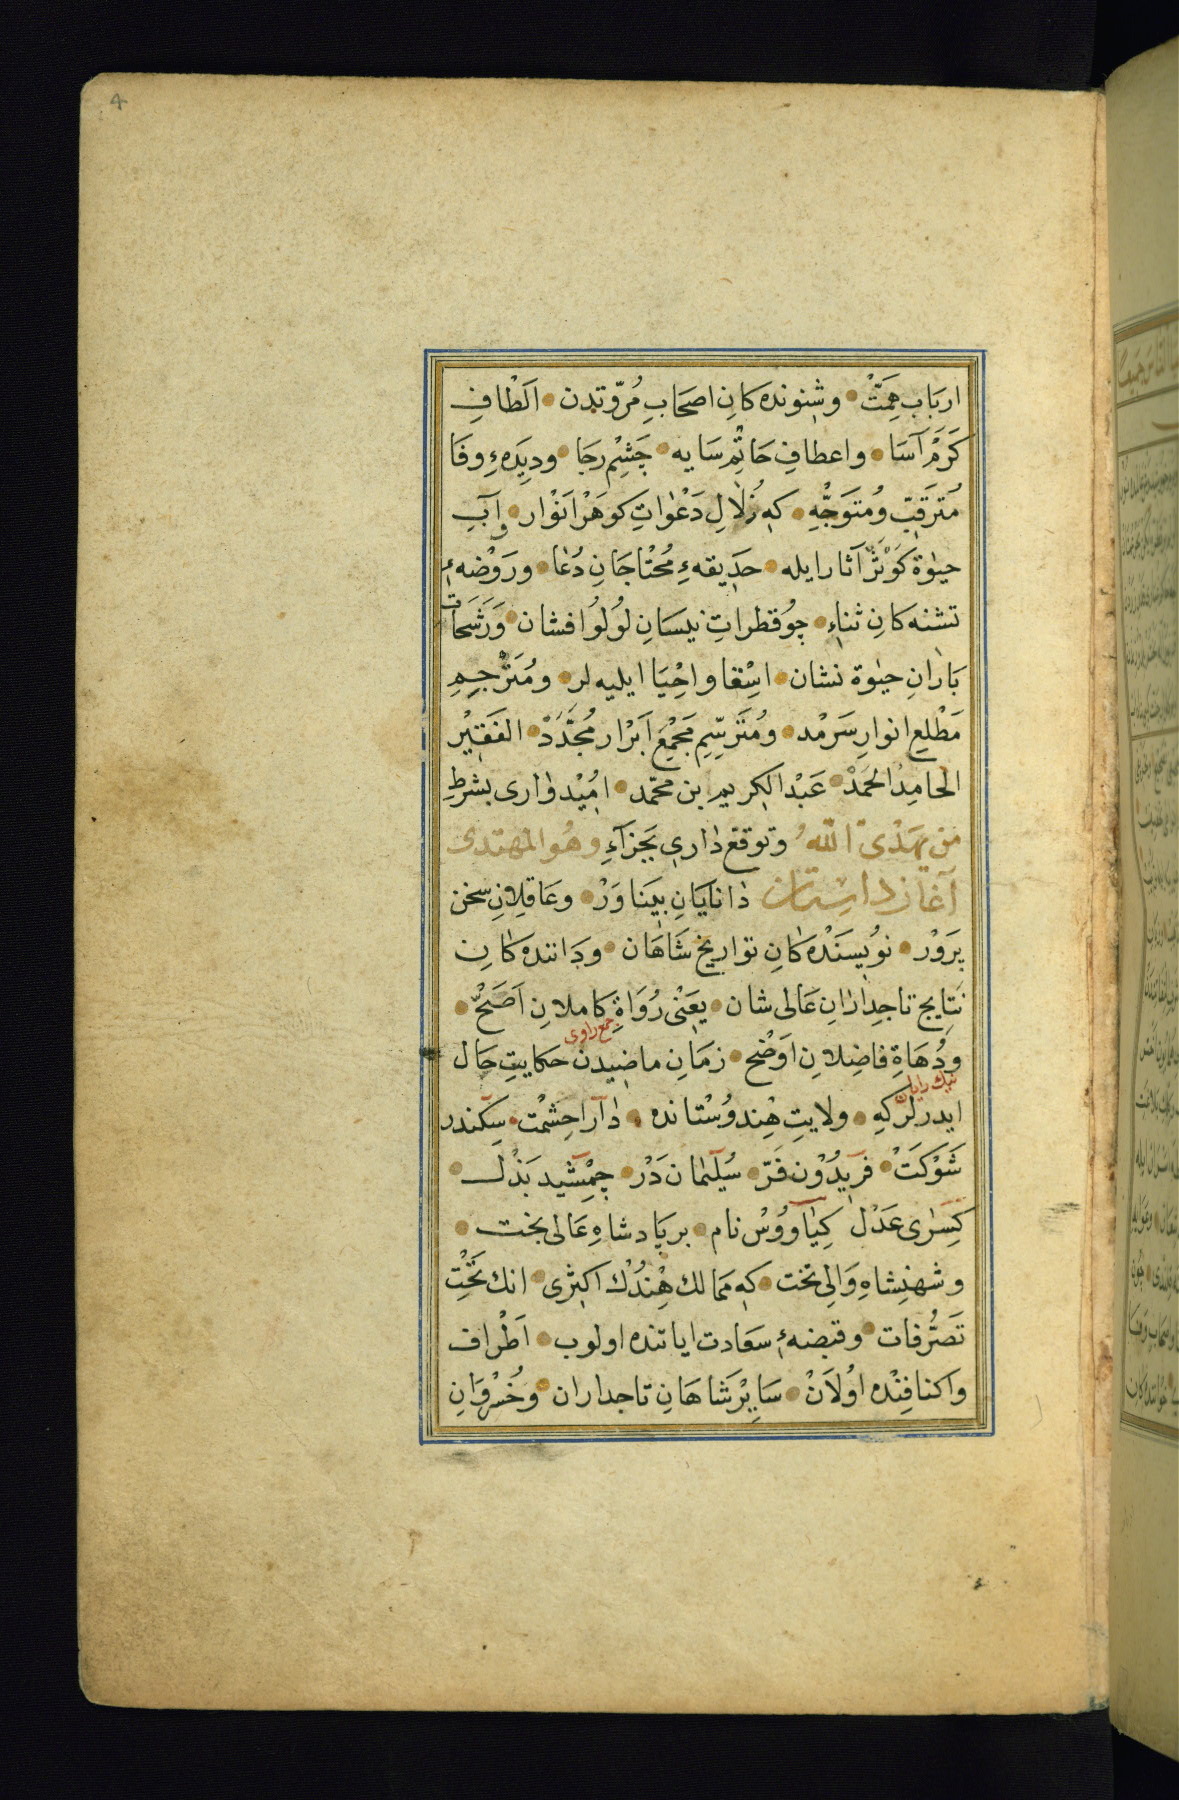 4
ارباب همّت وشنونده كان اصحاب مروّتدن الطاف
كرم آسا واعطاف حاتم سايه چشم رجا وديدهء وفا
مترقّب ومتوجّه كه زلال دعوات كوهر انوار وآب
حيوة كوثر آثار ايله حديقهء محتاجان دعا وروضهء
تشنه كان ثناء چو قطرات نيسان لولو افشان ورشحات
باران حيوة نشان اسقا و احيا ايليه لر ومترجم
مطلع انوار سرمد ومترسّم مجمع ابرار مجدّد الفقير
الحامد الحمد عبد الكريم بن محمّد اميد وارى بشرط
من يهدى الله وتوقع دارى بجزآء وهو المهتدى
آغاز داستان دانايان بيناور وعاقلان سخن
پرور نويسنده كان تواريخ شاهان وداننده كان
نتايج تاجداران عالى شان يعنى رواة كاملان اصحّ
جمع راوى
ودهاة فاضلان اوضح زمان ماضيدن حكايت حال
نيك رايان
ايدرلر كه ولايت هندوستانده دآرا حشمت سكندر
شوكت فريدون فرّ سليمان در جمشيد بذل
كسراى عدل كياووس نام بر پادشاه عالى بخت
وشهنشاه والى تخت كه ممالك هندك اكثرى انك تخت
تصرّفات وقبضهء سعادت اياتنده اولوب اطراف
واكنافنده اولان ساير شاهان تاجداران وخسروان